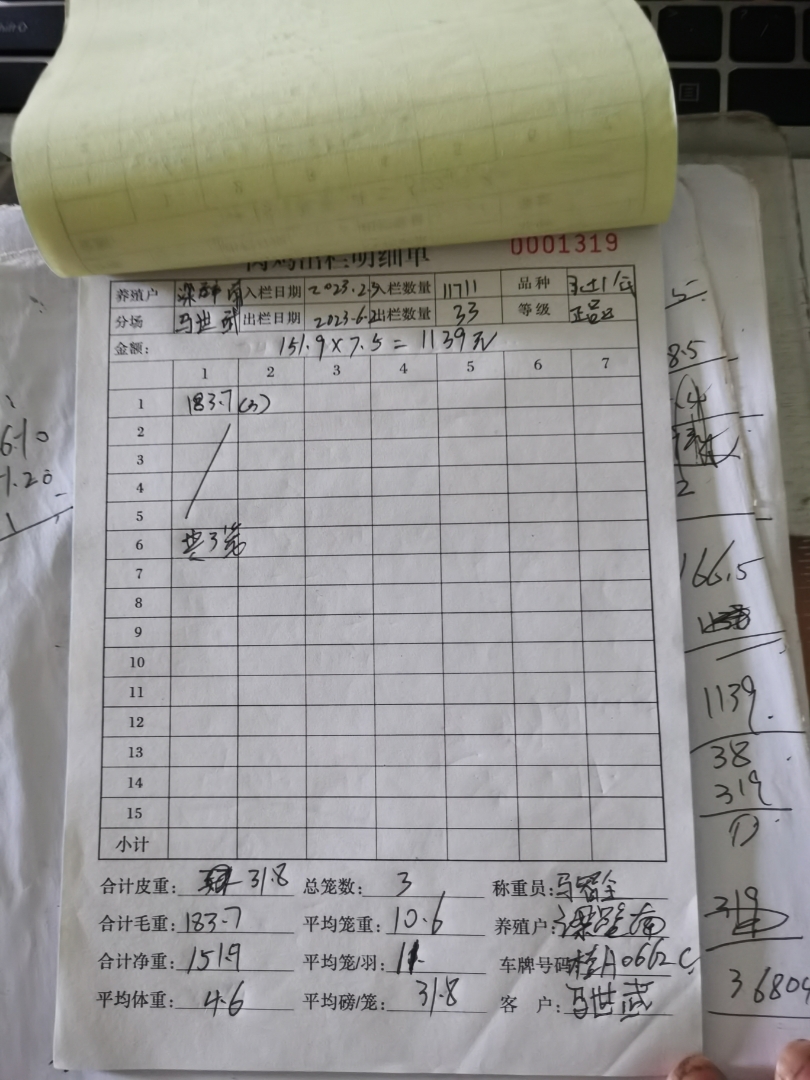 肉鸡出栏明细单 0001319
养殖户 入栏日期 2023.2 入栏数量 11711 品种
分场 马世武 出栏日期 2023.6.2 出栏数量 33 等级 正品
金额: 151.9×7.5=1139元
1 2 3 4 5 6 7
1 183.7(3)
2
3
4
5
6 共3笼
7
8
9
10
11
12
13
14
15
小计
合计皮重: 31.8 总笼数: 3 称重员: 马
合计毛重: 183.7 平均笼重: 10.6 养殖户:
合计净重: 151.9 平均笼/羽: 11 车牌号码: 桂A0662C
平均体重: 4.6 平均磅/笼: 31.8 客 户: 马世武
8.5
2
166.5
1139
38
319
319
36809